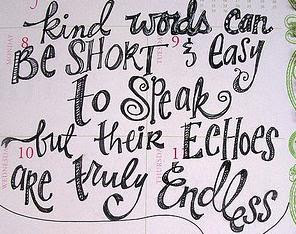 kind words can
BE SHORT & easy
to Speak
but their ECHOES
are truly Endless
MONDAY
8
9
WEDNESDAY
10
THURSDAY
1